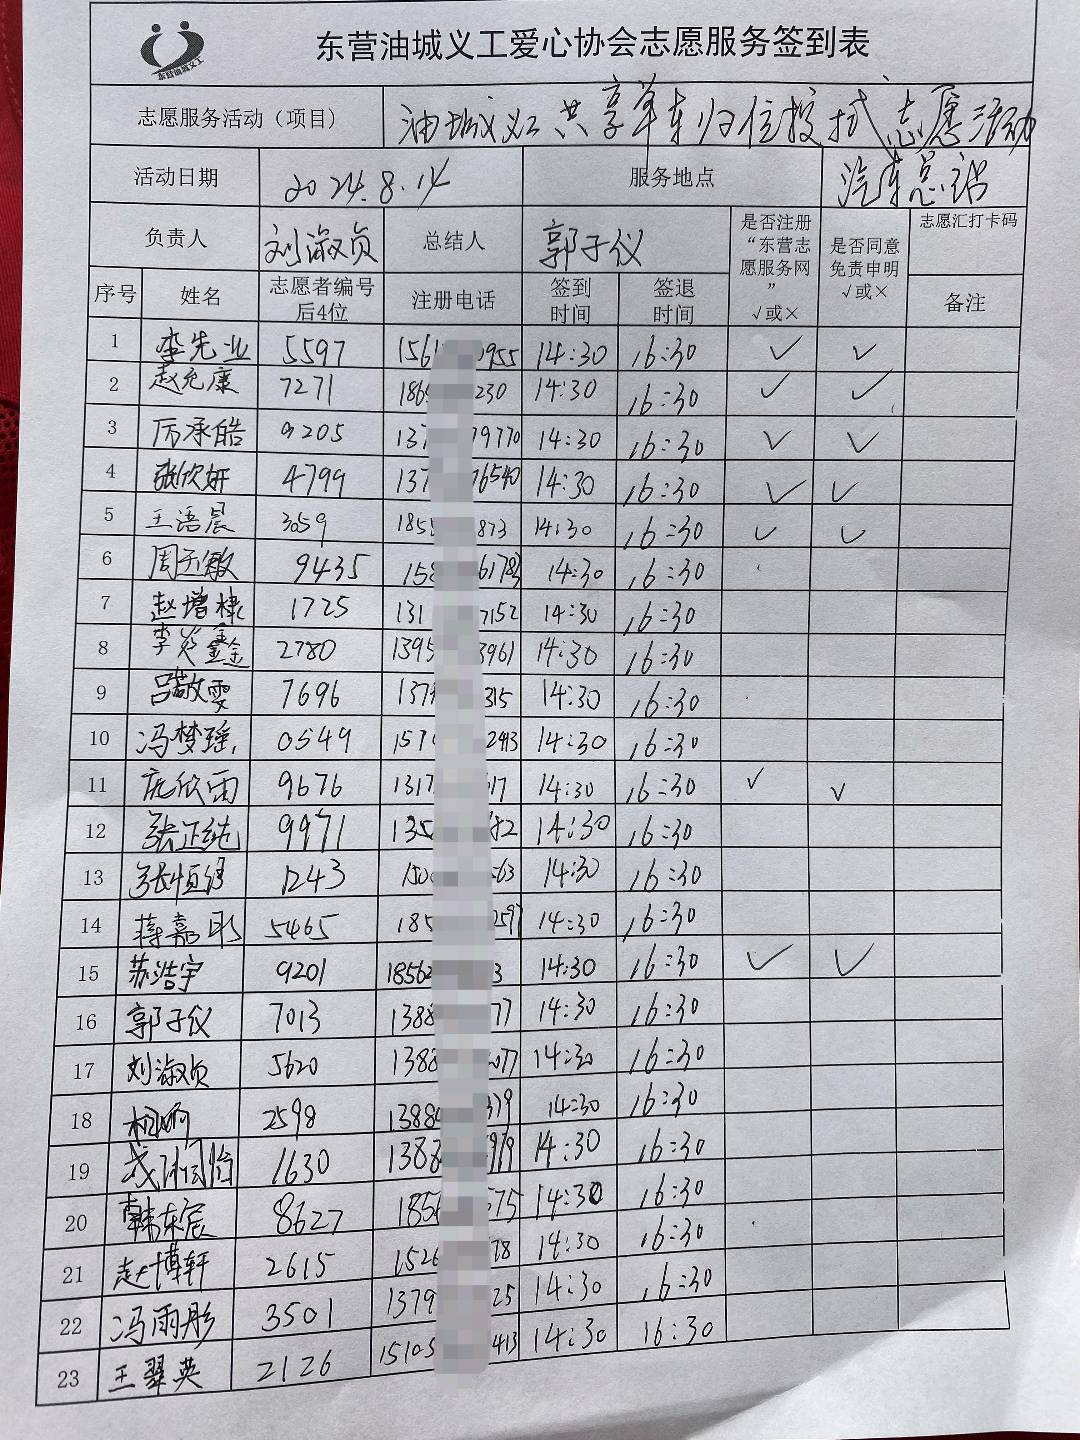 东营油城义工
东营油城义工爱心协会志愿服务签到表
志愿服务活动（项目） 油城义工共享单车归位擦拭志愿活动
活动日期 2024.8.14 服务地点 汽车总站
负责人 刘淑贞 总结人 郭子仪 是否注册“东营志愿服务网” √或× 是否同意免责申明 √或× 志愿汇打卡码
序号 姓名 志愿者编号后4位 注册电话 签到时间 签退时间 备注
1 李先业 5597 1561 955 14:30 16:30 ✓ ✓
2 赵允康 7271 186 230 14:30 16:30 ✓ ✓
3 厉承皓 9205 137 79770 14:30 16:30 ✓ ✓
4 张欣妍 4799 137 76540 14:30 16:30 ✓ ✓
5 王语晨 3059 185 873 14:30 16:30 ✓ ✓
6 周玉敏 9435 158 61783 14:30 16:30
7 赵增棣 1725 131 7152 14:30 16:30
8 李炎鑫 2780 1395 3961 14:30 16:30
9 吕敬雯 7696 137 315 14:30 16:30
10 冯梦瑶 0549 159 2993 14:30 16:30
11 庞欣雨 9676 1317 17 14:30 16:30 ✓ ✓
12 张正纯 9971 135 82 14:30 16:30
13 张恒绪 1243 63 14:30 16:30
14 蒋嘉彤 5465 185 2597 14:30 16:30
15 苏浩宇 9201 18562 3 14:30 16:30 ✓ ✓
16 郭子仪 7013 1388 77 14:30 16:30
17 刘淑贞 5620 1388 077 14:30 16:30
18 2598 1388 379 14:30 16:30
19 1630 1388 979 14:30 16:30
20 韩东宸 8627 1856 575 14:30 16:30
21 赵博轩 2615 1526 78 14:30 16:30
22 冯雨彤 3501 1379 25 14:30 16:30
23 王翠英 2126 15105 413 14:30 16:30